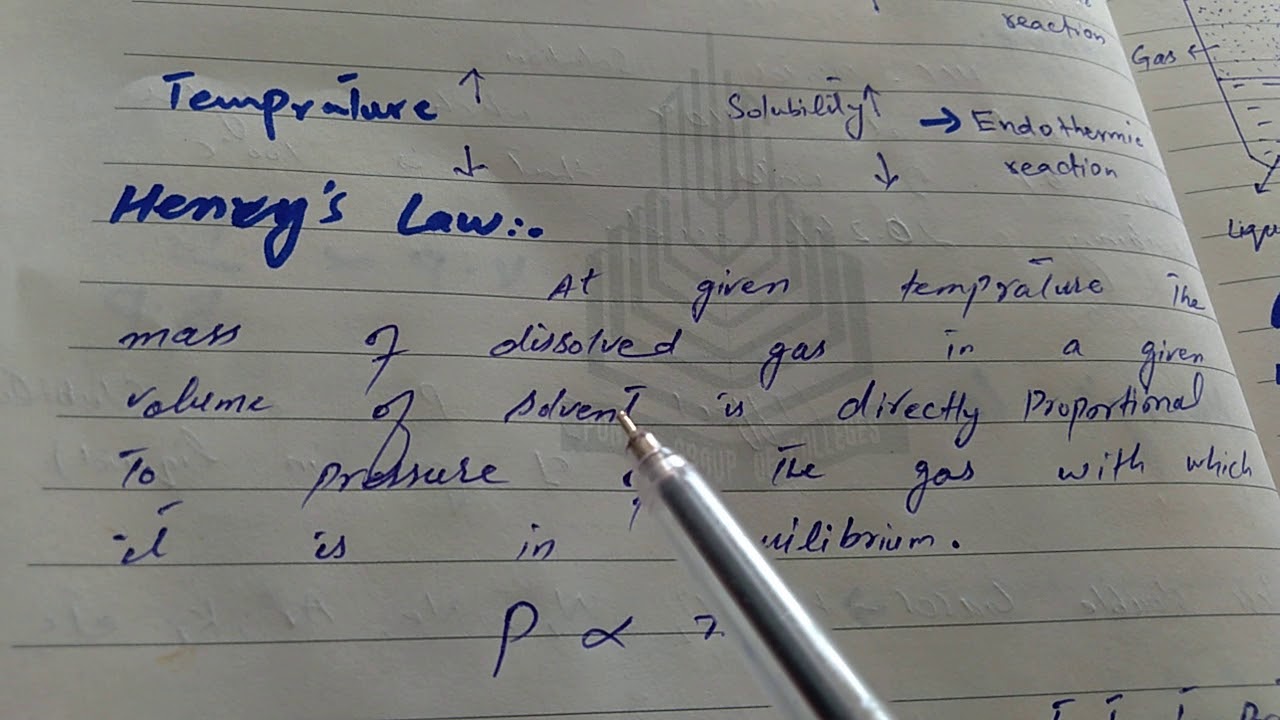 reaction
Gas
Temprature ↑ Solubility↑ → Endothermic
↓ ↓ reaction
Henry's Law:.
At given temprature The
mass of dissolved gas in a given
volume of solvent is directly Proportional
To pressure The gas with which
it is in uilibrium.
P ∝